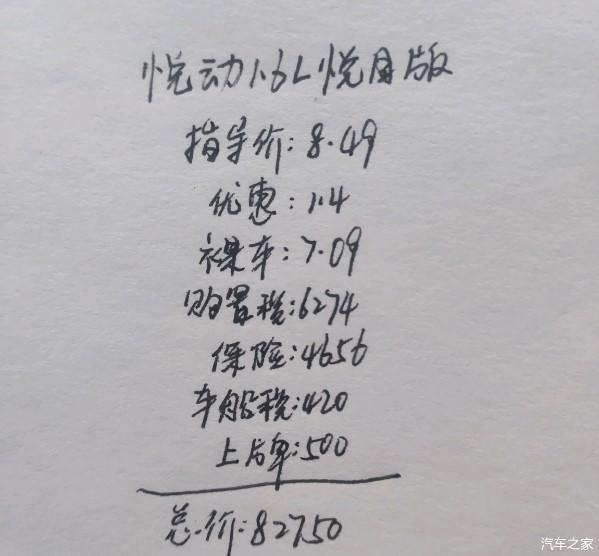 悦动1.6L悦目版
指导价:8.49
优惠:1.4
裸车:7.09
购置税:6274
保险:4656
车船税:420
上牌:500
总价:82750
汽车之家